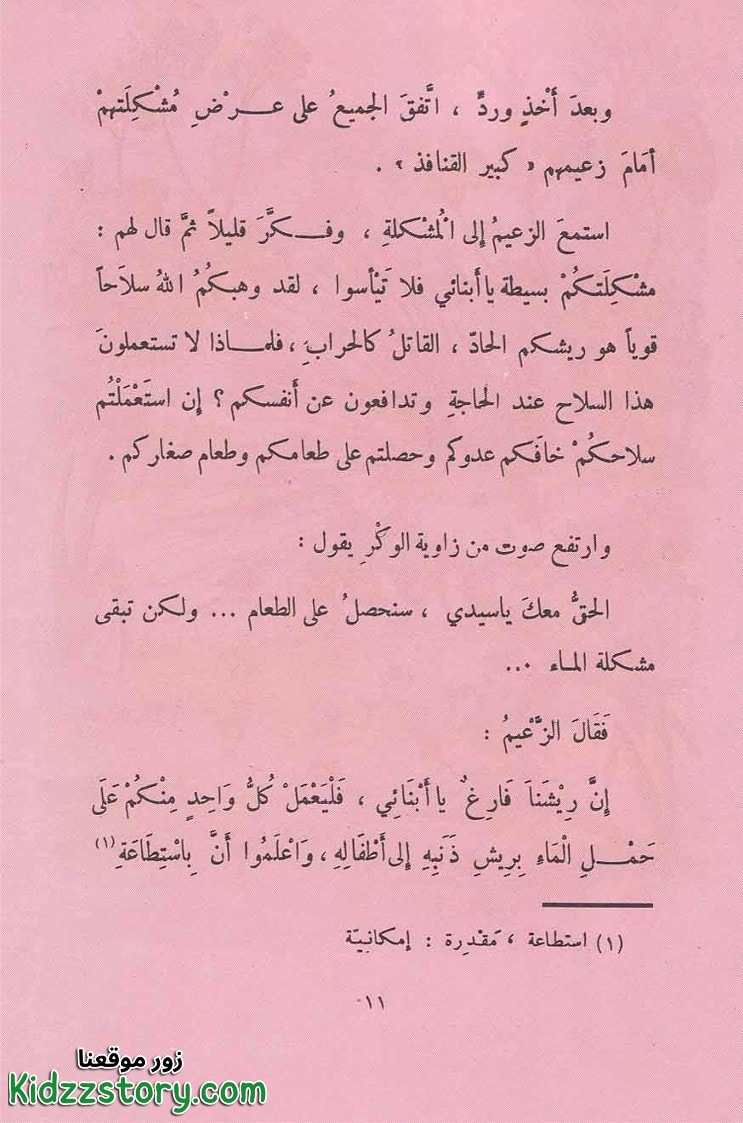 وبعدَ أَخْذٍ وردٍّ ، اتَّفقَ الجميعُ على عـرْضِ مُشْكِلَتهِمْ
أمَامَ زعيمهم « كبير القنافذ » .
استمعَ الزعيمُ إلى الْمُشْكلةِ ، وفـكَّرَ قليلاً ثمَّ قال لهم :
مشْكِلَتكُمْ بسيطة يا أبنائي فلا تَيْأسوا ، لقد وهبكُمُ اللهُ سلاَحاً
قوياً هو ريشكم الحادّ ، القاتلُ كالحرابِ ، فلمـاذا لا تستعملونَ
هذا السلاح عند الحاجةِ وتدافعون عن أَنفسكم ؟ إن استَعْمَلْتُم
سلاحكُمْ خافَكم عدوكم وحصلتم على طعامكم وطعام صغاركم .
وارتفع صوت من زاوية الوكْرِ يقول :
الحقُّ معكَ ياسيدي ، سنحصلُ على الطعام ... ولكن تبقى
مشكلة المـاء ...
فَقَالَ الزَّعْيمُ :
إنَّ رِيْشَنَا فَارِغٌ يا أبْنَائِي ، فَلْيَعْمَلْ كُلُّ وَاحِدٍ مِنْكُمْ عَلَى
حَمْـلِ الْمَاءِ بِرِيشِ ذَنَبِهِ إلى أطْفَالِهِ ، وَاعْلَمُوا أنَّ بِاسْتِطَاعَةِ (١)
(١) استطاعة ، مَقْدِرة : إمكانيّة
١١
زور موقعنا
Kidzzstory.com